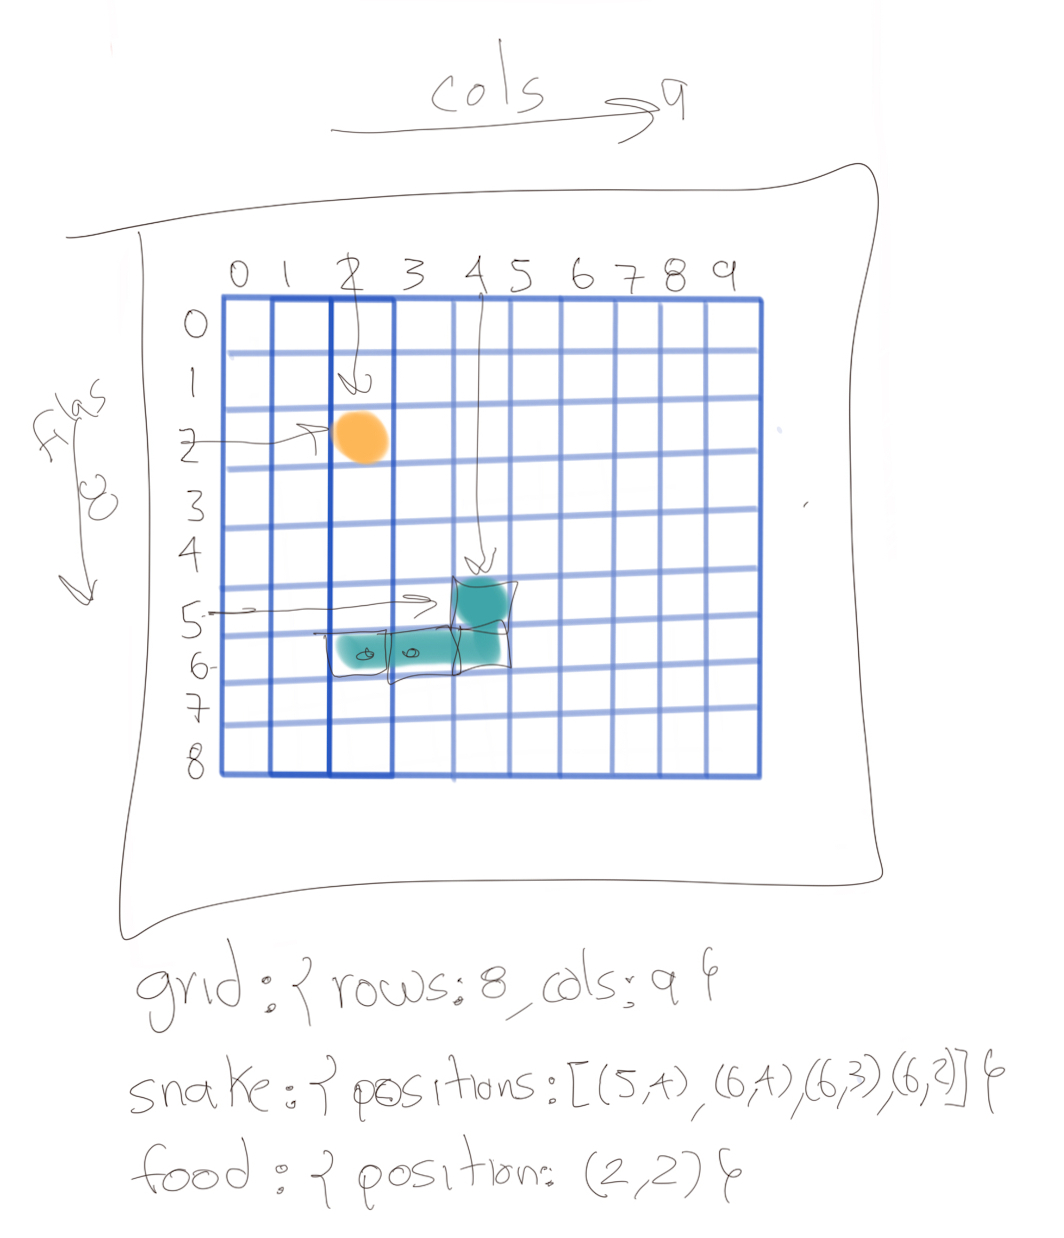 cols
9
0 1 2 3 4 5 6 7 8 9
0
1
2
3
4
5
6
7
8
filas
8
grid: { rows: 8, cols: 9 }
snake: { positions: [(5,4), (6,4), (6,3), (6,2)] }
food: { position: (2,2) }